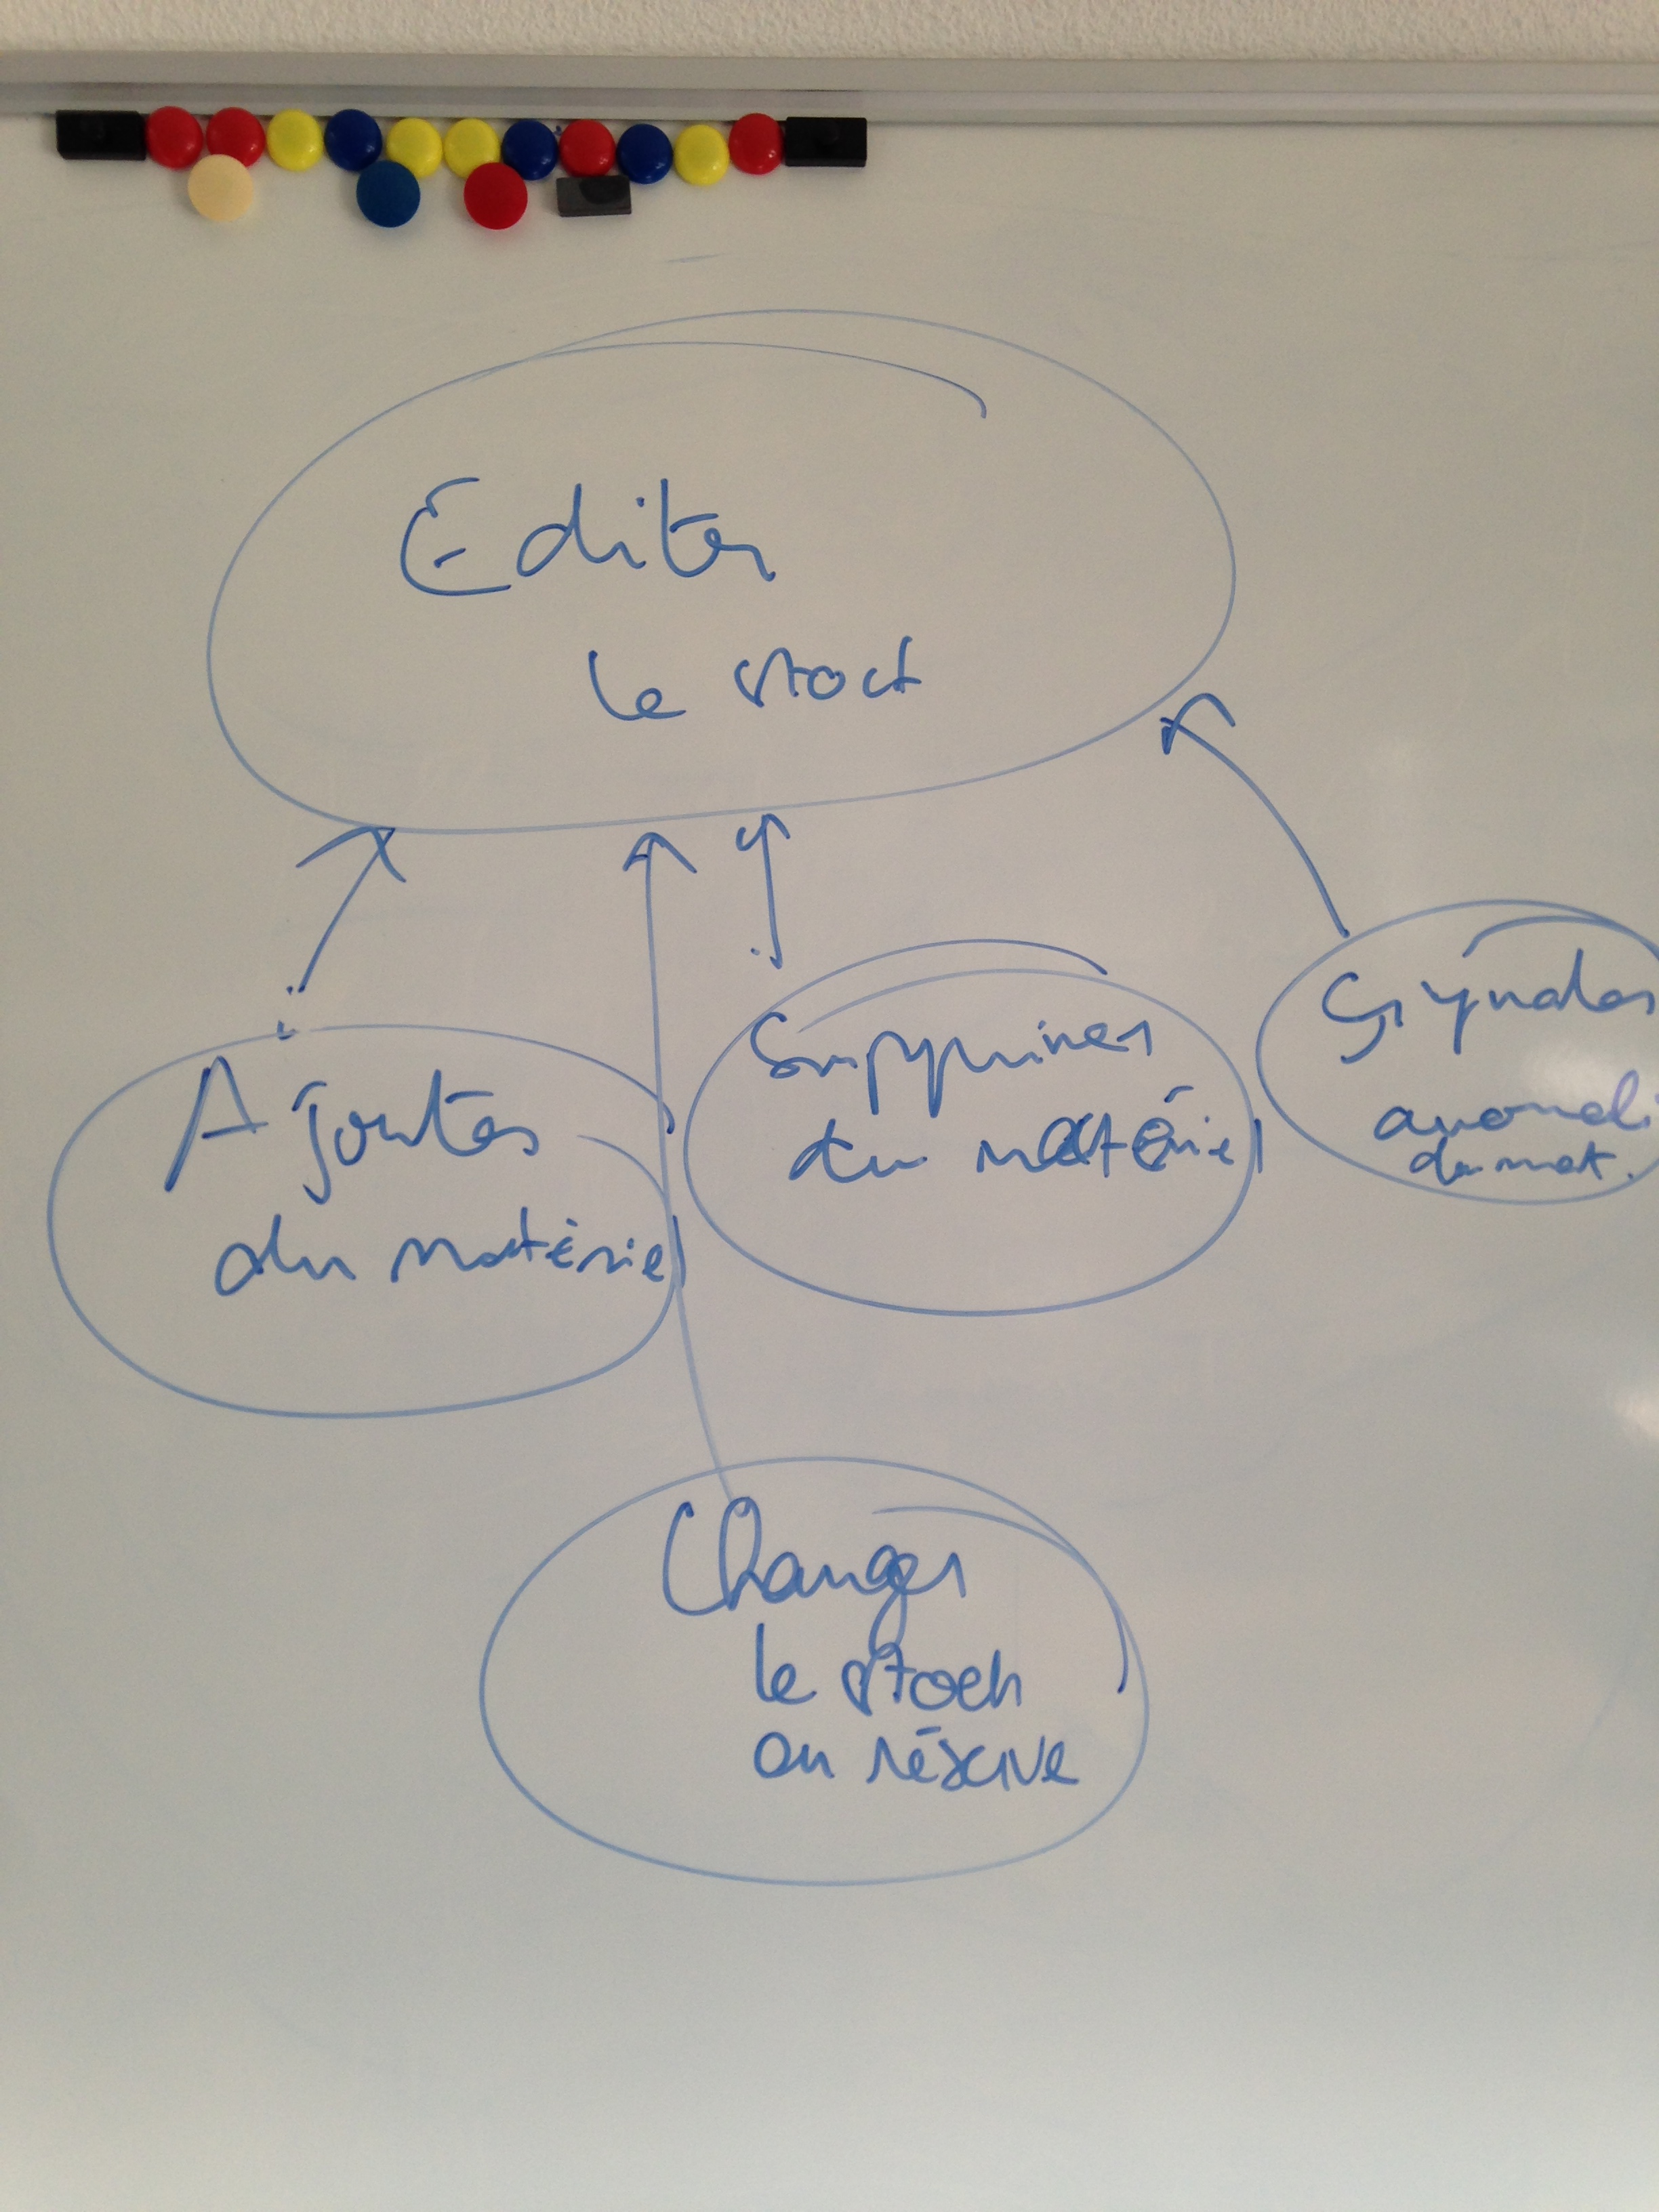 Editer
le stock
Ajouter
du matériel
Supprimer
du matériel
Signaler
anomali
du mat.
Changer
le stock
en réserve